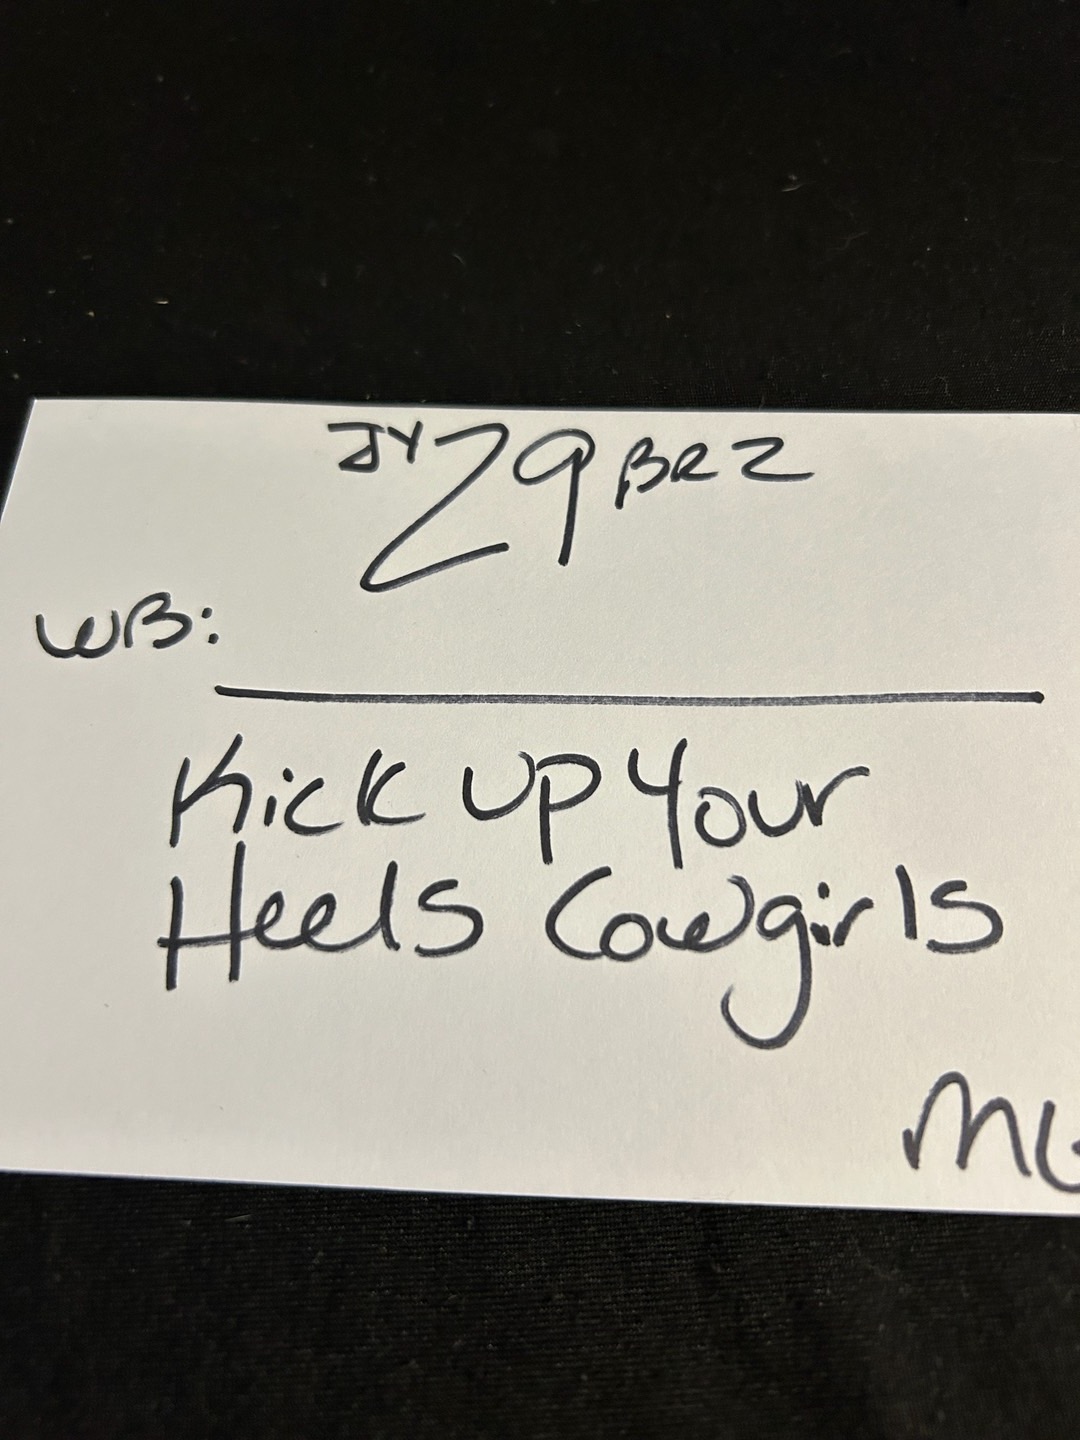 JY Z9 BRZ
WB:
Kick up Your
Heels Cowgirls